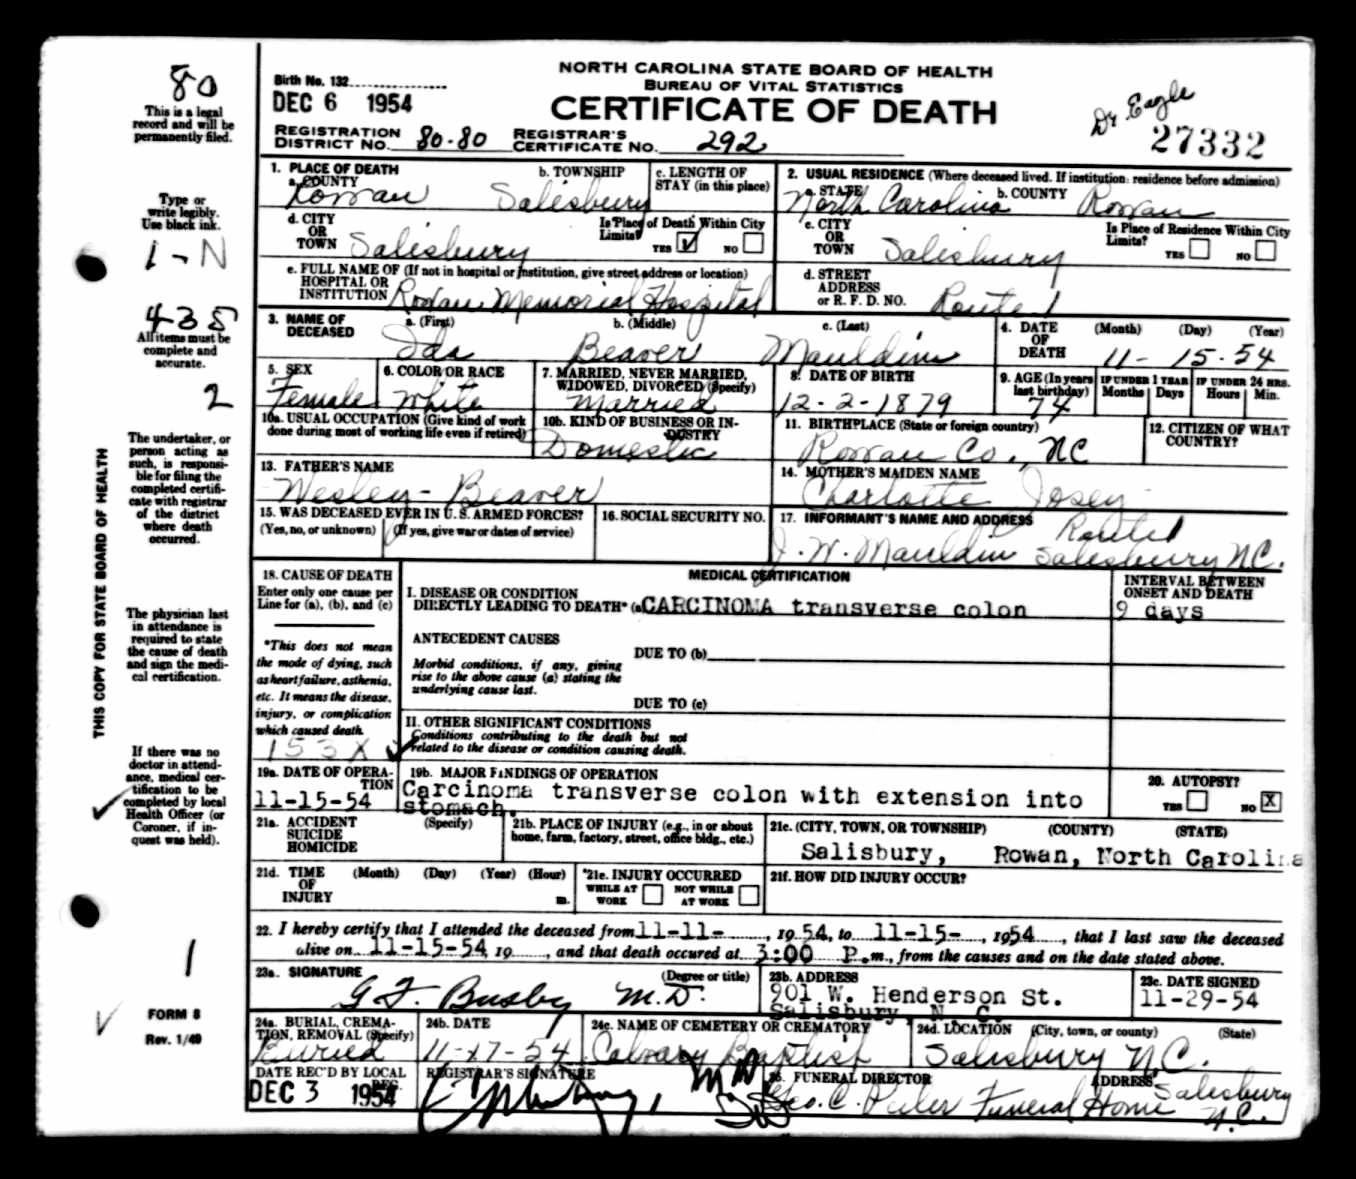 80
This is a legal
record and will be
permanently filed.
Type or
write legibly.
Use black ink.
1-N
435
All items must be
complete and
accurate.
2
The undertaker, or
person acting as
such, is responsi-
ble for filing the
completed certifi-
cate with registrar
of the district
where death
occurred.
THIS COPY FOR STATE BOARD OF HEALTH
The physician last
in attendance is
required to state
the cause of death
and sign the medi-
cal certification.
If there was no
doctor in attend-
ance, medical cer-
tification to be
completed by local
Health Officer (or
Coroner, if in-
quest was held).
1
FORM 8
Rev. 1/49
NORTH CAROLINA STATE BOARD OF HEALTH
BUREAU OF VITAL STATISTICS
CERTIFICATE OF DEATH
Birth No. 132
DEC 6 1954
Dr Eagle
27332
REGISTRATION DISTRICT NO. 80-80 REGISTRAR'S CERTIFICATE NO. 292
1. PLACE OF DEATH
a. COUNTY Rowan
b. TOWNSHIP Salisbury
c. LENGTH OF STAY (in this place)
2. USUAL RESIDENCE (Where deceased lived. If institution: residence before admission)
a. STATE North Carolina b. COUNTY Rowan
d. CITY OR TOWN Salisbury
Is Place of Death Within City Limits? YES ✓ NO
c. CITY OR TOWN Salisbury
Is Place of Residence Within City Limits? YES NO
e. FULL NAME OF (If not in hospital or institution, give street address or location)
HOSPITAL OR INSTITUTION Rowan Memorial Hospital
d. STREET ADDRESS or R. F. D. NO. Route 1
3. NAME OF DECEASED
a. (First) b. (Middle) c. (Last)
Ida Beaver Mauldin
4. DATE OF DEATH (Month) (Day) (Year)
11-15-54
5. SEX
Female
6. COLOR OR RACE
White
7. MARRIED, NEVER MARRIED, WIDOWED, DIVORCED (Specify)
Married
8. DATE OF BIRTH
12-2-1879
9. AGE (In years last birthday)
74
IF UNDER 1 YEAR Months Days
IF UNDER 24 HRS. Hours Min.
10a. USUAL OCCUPATION (Give kind of work done during most of working life even if retired)
10b. KIND OF BUSINESS OR INDUSTRY
Domestic
11. BIRTHPLACE (State or foreign country)
Rowan Co., NC
12. CITIZEN OF WHAT COUNTRY?
13. FATHER'S NAME
Wesley-Beaver
14. MOTHER'S MAIDEN NAME
Charlotte Josey
15. WAS DECEASED EVER IN U.S. ARMED FORCES?
(Yes, no, or unknown) (If yes, give war or dates of service)
16. SOCIAL SECURITY NO.
17. INFORMANT'S NAME AND ADDRESS
J. W. Mauldin Route 1 Salisbury N.C.
18. CAUSE OF DEATH
Enter only one cause per
Line for (a), (b), and (c)
*This does not mean
the mode of dying, such
as heart failure, asthenia,
etc. It means the disease,
injury, or complication
which caused death.
153X ✓
MEDICAL CERTIFICATION
INTERVAL BETWEEN ONSET AND DEATH
I. DISEASE OR CONDITION
DIRECTLY LEADING TO DEATH* (a) CARCINOMA transverse colon
9 days
ANTECEDENT CAUSES
DUE TO (b)
Morbid conditions, if any, giving
rise to the above cause (a) stating the
underlying cause last.
DUE TO (c)
II. OTHER SIGNIFICANT CONDITIONS
Conditions contributing to the death but not
related to the disease or condition causing death.
19a. DATE OF OPERATION
11-15-54
19b. MAJOR FINDINGS OF OPERATION
Carcinoma transverse colon with extension into
stomach.
20. AUTOPSY?
YES NO X
21a. ACCIDENT SUICIDE HOMICIDE (Specify)
21b. PLACE OF INJURY (e.g., in or about home, farm, factory, street, office bldg., etc.)
21c. (CITY, TOWN, OR TOWNSHIP) (COUNTY) (STATE)
Salisbury, Rowan, North Carolina
21d. TIME OF INJURY (Month) (Day) (Year) (Hour) m.
21e. INJURY OCCURRED
WHILE AT WORK NOT WHILE AT WORK
21f. HOW DID INJURY OCCUR?
22. I hereby certify that I attended the deceased from 11-11-, 1954, to 11-15-, 1954, that I last saw the deceased
alive on 11-15-54, 19, and that death occured at 3:00 P.m., from the causes and on the date stated above.
23a. SIGNATURE (Degree or title)
G.F. Busby M.D.
23b. ADDRESS
901 W. Henderson St.
Salisbury, N. C.
23c. DATE SIGNED
11-29-54
24a. BURIAL, CREMATION, REMOVAL (Specify)
Buried
24b. DATE
11-17-54
24c. NAME OF CEMETERY OR CREMATORY
Calvary Baptist
24d. LOCATION (City, town, or county) (State)
Salisbury N.C.
DATE REC'D BY LOCAL REG.
DEC 3 1954
REGISTRAR'S SIGNATURE
MD
25. FUNERAL DIRECTOR ADDRESS
Geo. C. Peeler Funeral Home Salisbury N.C.